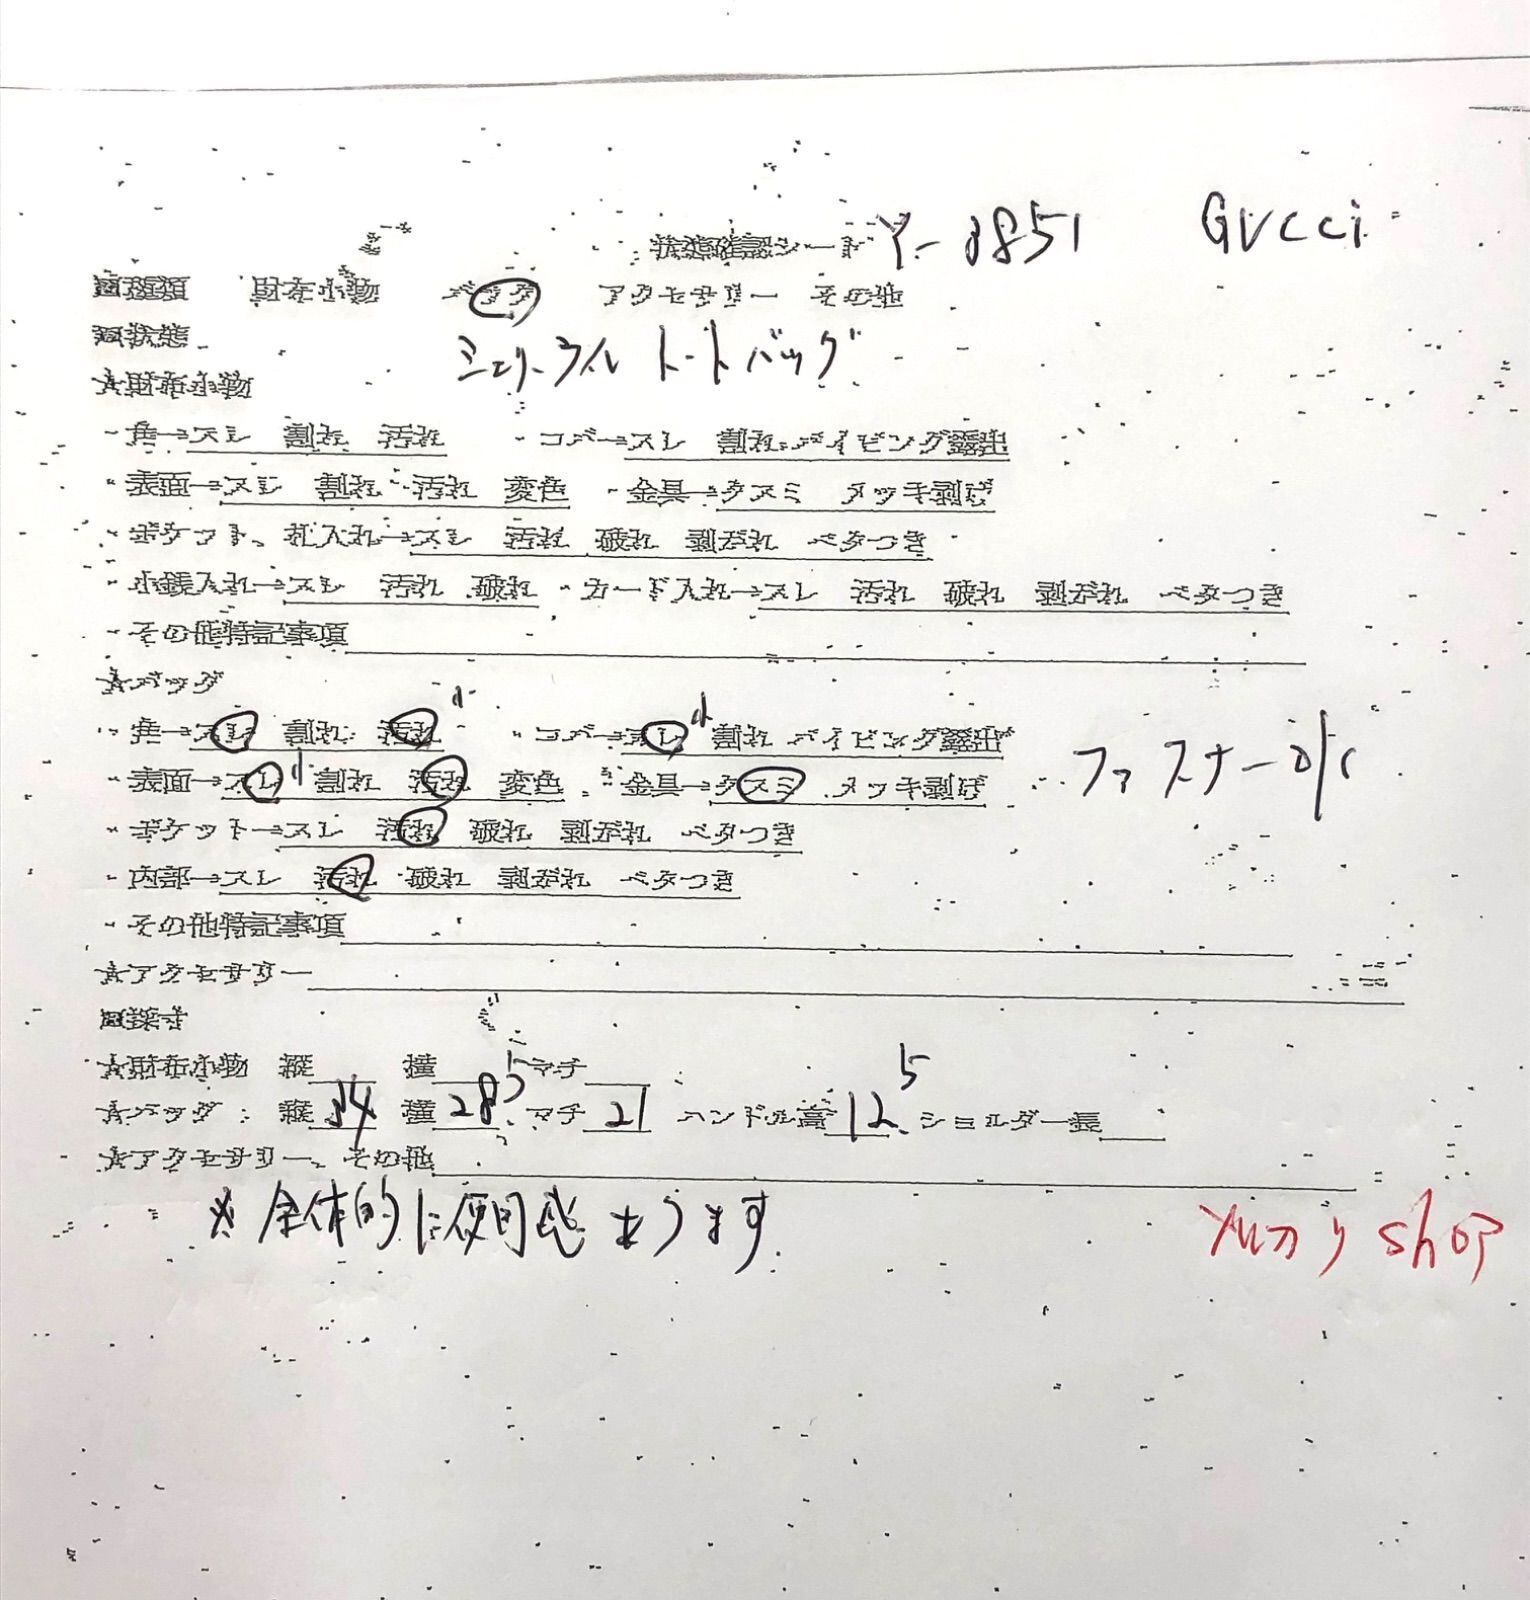 状態確認シート Y-3851 Gucci
□種類 財布小物 バッグ アクセサリー その他
□状態 シェリーライン トートバッグ
☆財布小物
・角→スレ 割れ 汚れ ・コバ→スレ 割れ パイピング露出
・表面→スレ 割れ 汚れ 変色 ・金具→クスミ メッキ剥げ
・ポケット、札入れ→スレ 汚れ 破れ 剥がれ ベタつき
・小銭入れ→スレ 汚れ 破れ ・カード入れ→スレ 汚れ 破れ 剥がれ ベタつき
・その他特記事項
☆バッグ
・角→スレ 割れ 汚れ 小 ・コバ→スレ 小 割れ パイピング露出
・表面→スレ 小 割れ 汚れ 変色 ・金具→クスミ メッキ剥げ ファスナー o/c
・ポケット→スレ 汚れ 破れ 剥がれ ベタつき
・内部→スレ 汚れ 破れ 剥がれ ベタつき
・その他特記事項
☆アクセサリー
□採寸
☆財布小物 縦 横 マチ
☆バッグ:縦 34 横 28.5 マチ 21 ハンドル高 12.5 ショルダー長
☆アクセサリー、その他
※全体的に使用感あります
shop